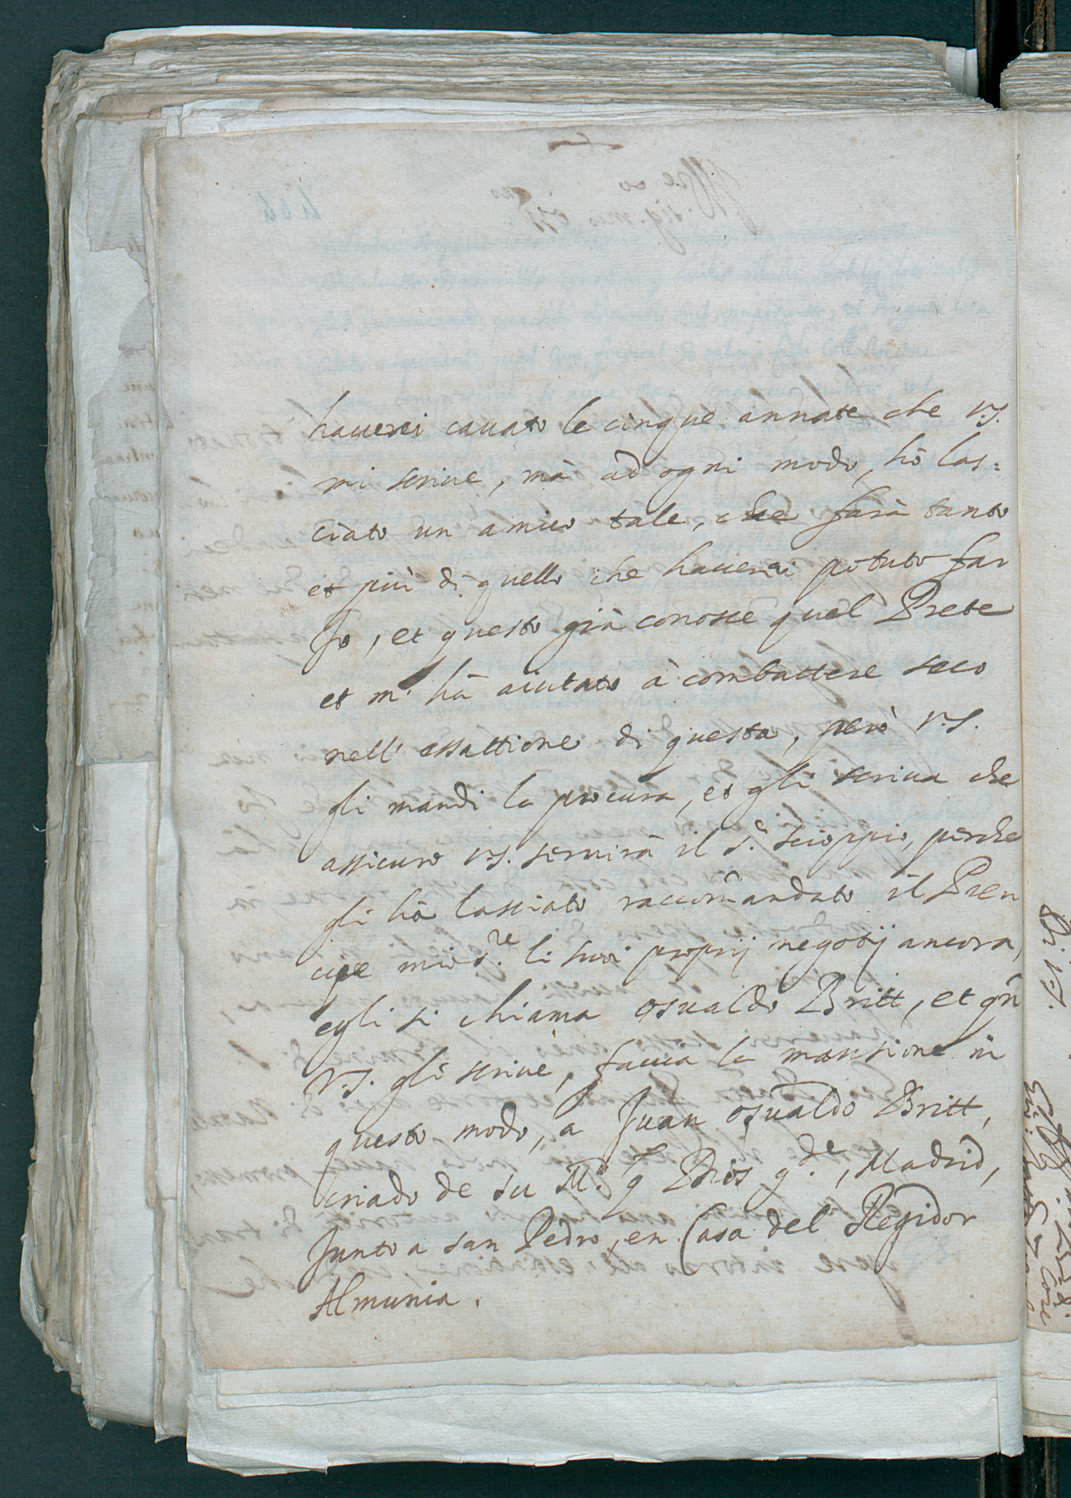 hauerei cauato le cinque annate che V.S.
mi scriue, mà ad ogni modo, hò las=
ciato un amico tale, che farà tanto
et più di quello che hauerei potuto far
Jo, et questo già conosce quel Prete
et m' hà aiutato à combattere seco
nell' essattione di questa, però V.S.
gli mandi la procura, et gli scriua che
assicuro V.S. seruirà il S.r Scioppio, perche
gli hà lasciato raccomandato il Pren
cipe mio S.re li suoi proprij negotij ancora,
egli si chiama Osualdo Britt, et qn
V.S. gli scriue, faccia la mansione in
questo modo, a Juan Osualdo Britt,
criado de su M.d q Dios g.de, Madrid,
Junto a san Pedro, en Casa del Regidor
Almunia.